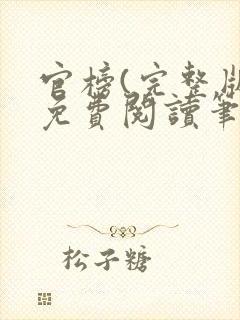 官榜(完整版
免費閱讀筆
松子糖